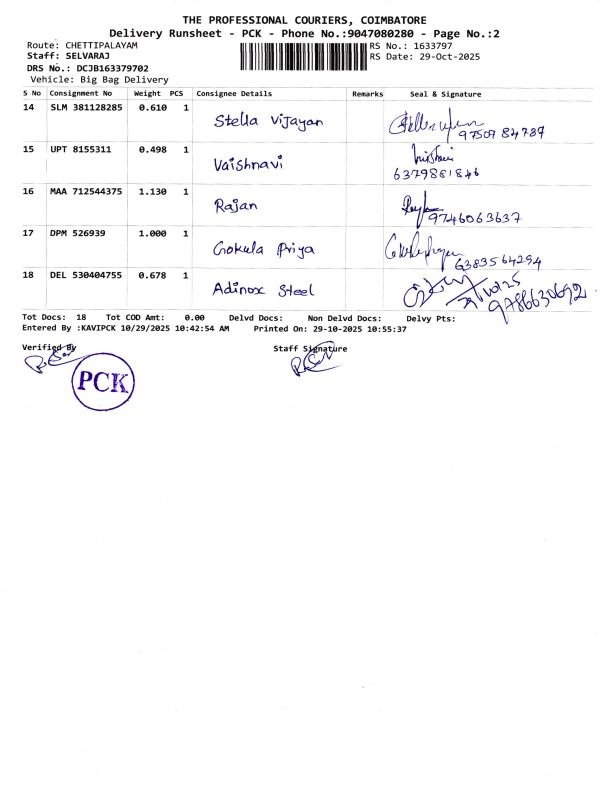 THE PROFESSIONAL COURIERS, COIMBATORE
Delivery Runsheet - PCK - Phone No.:9047080280 - Page No.:2
Route: CHETTIPALAYAM RS No.: 1633797
Staff: SELVARAJ RS Date: 29-Oct-2025
DRS No.: DCJB163379702
Vehicle: Big Bag Delivery
S No Consignment No Weight PCS Consignee Details Remarks Seal & Signature
14 SLM 381128285 0.610 1 Stella Vijayan
9750784789
15 UPT 8155311 0.498 1 Vaishnavi
6379881846
16 MAA 712544375 1.130 1 Rajan
9746063637
17 DPM 526939 1.000 1 Gokula Priya
6383564294
18 DEL 530404755 0.678 1 Adinox Steel
9786630692
Tot Docs: 18 Tot COD Amt: 0.00 Delvd Docs: Non Delvd Docs: Delvy Pts:
Entered By :KAVIPCK 10/29/2025 10:42:54 AM Printed On: 29-10-2025 10:55:37
Verified By Staff Signature
PCK